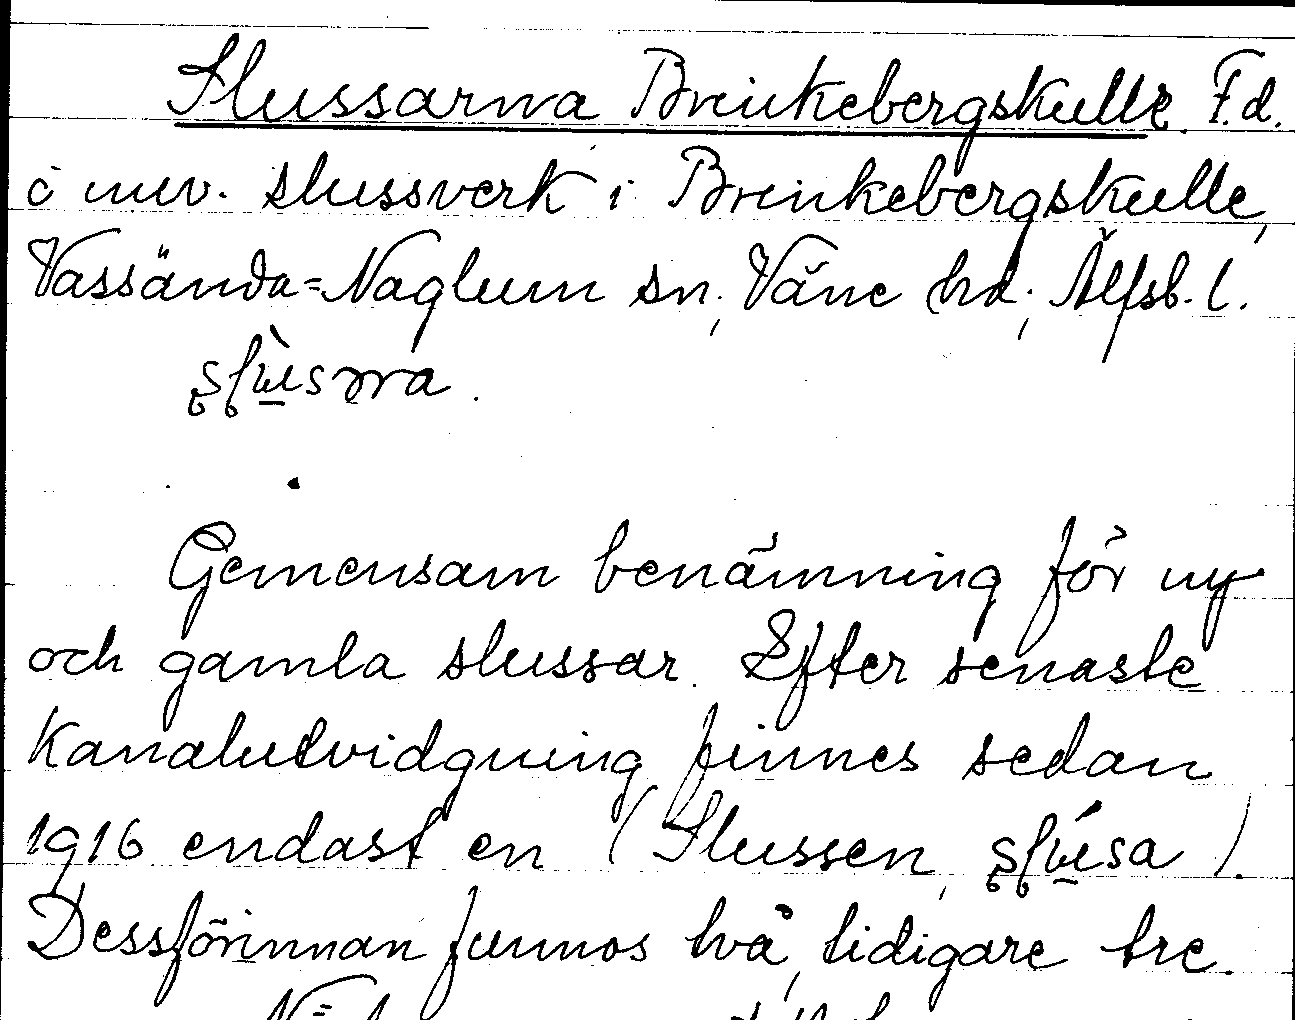 Slussarna Brinkebergskulle. F.d.
o nuv. slussverk i Brinkebergskulle,
Vassända-Naglum sn, Väne hd, Älfsb. l.
Gemensam benämning för ny
och gamla slussar. Efter senaste
kanalutvidgning finnes sedan
1916 endast en (Slussen,
Dessförinnan funnos två, tidigare tre.